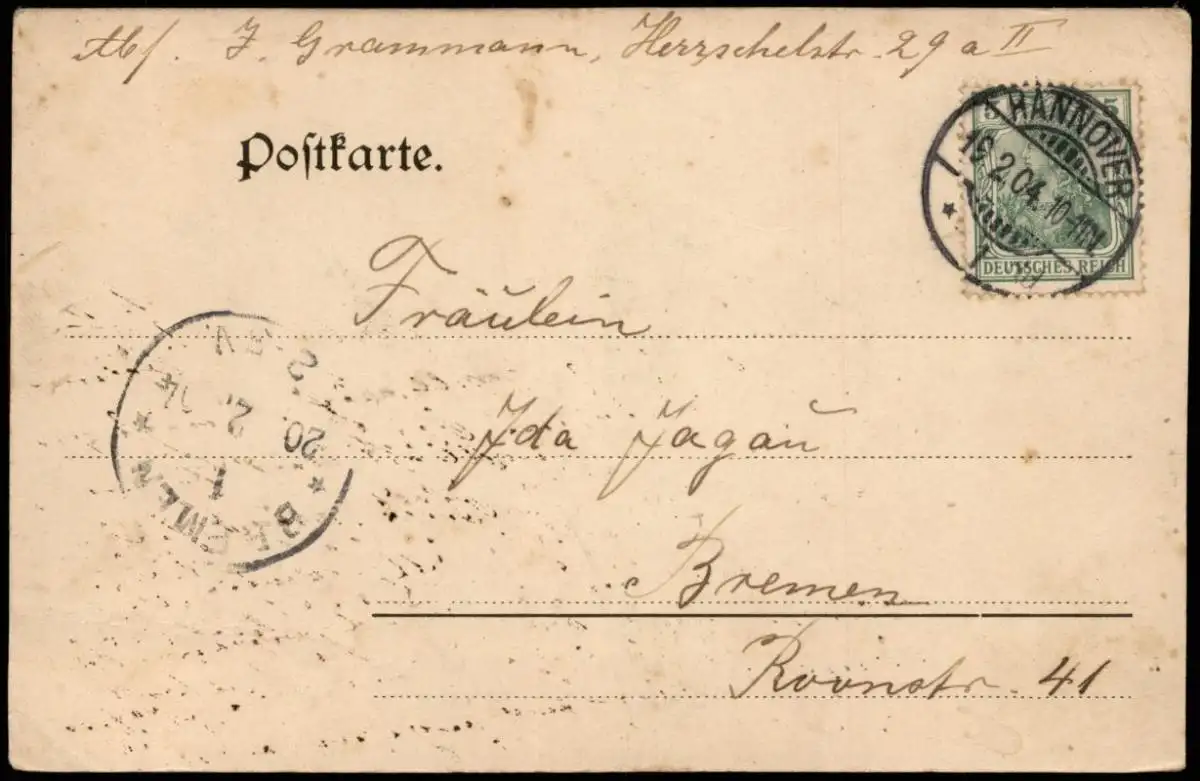 Abs. J. Grammann, Herrschelstr. 29 a II
Poſtkarte.
5 5
HANNOVER
19.2.04. 10-11N.
DEUTSCHES REICH
Fräulein
Ida Jagau
Bremen
Roonstr. 41
BREMEN
1
20. 2. 04